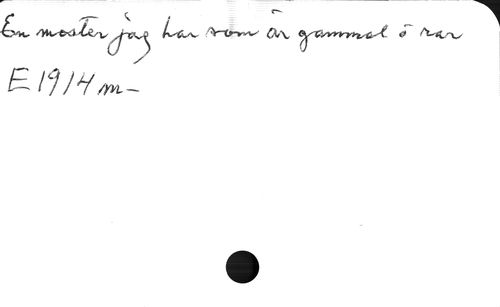 En moster jag har som är gammal ö rar
E 1914 m-